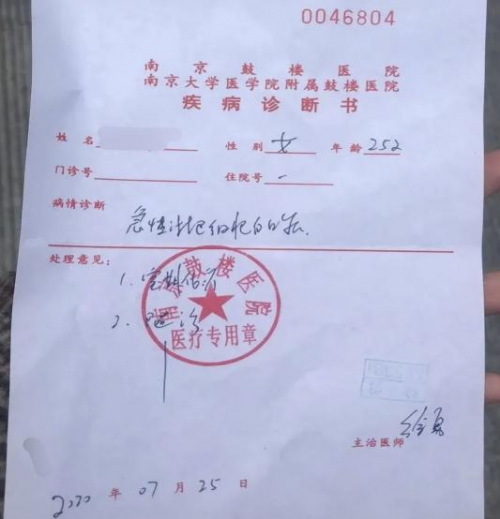 0046804
南京鼓楼医院
南京大学医学院附属鼓楼医院
疾病诊断书
姓名 性别 女 年龄 25岁
门诊号 住院号 -
病情诊断
急性淋巴细胞白血病.
处理意见：
1. 定期化疗
2. 随诊
鼓楼医院
医疗专用章
主治医师
2020 年 07 月 25 日